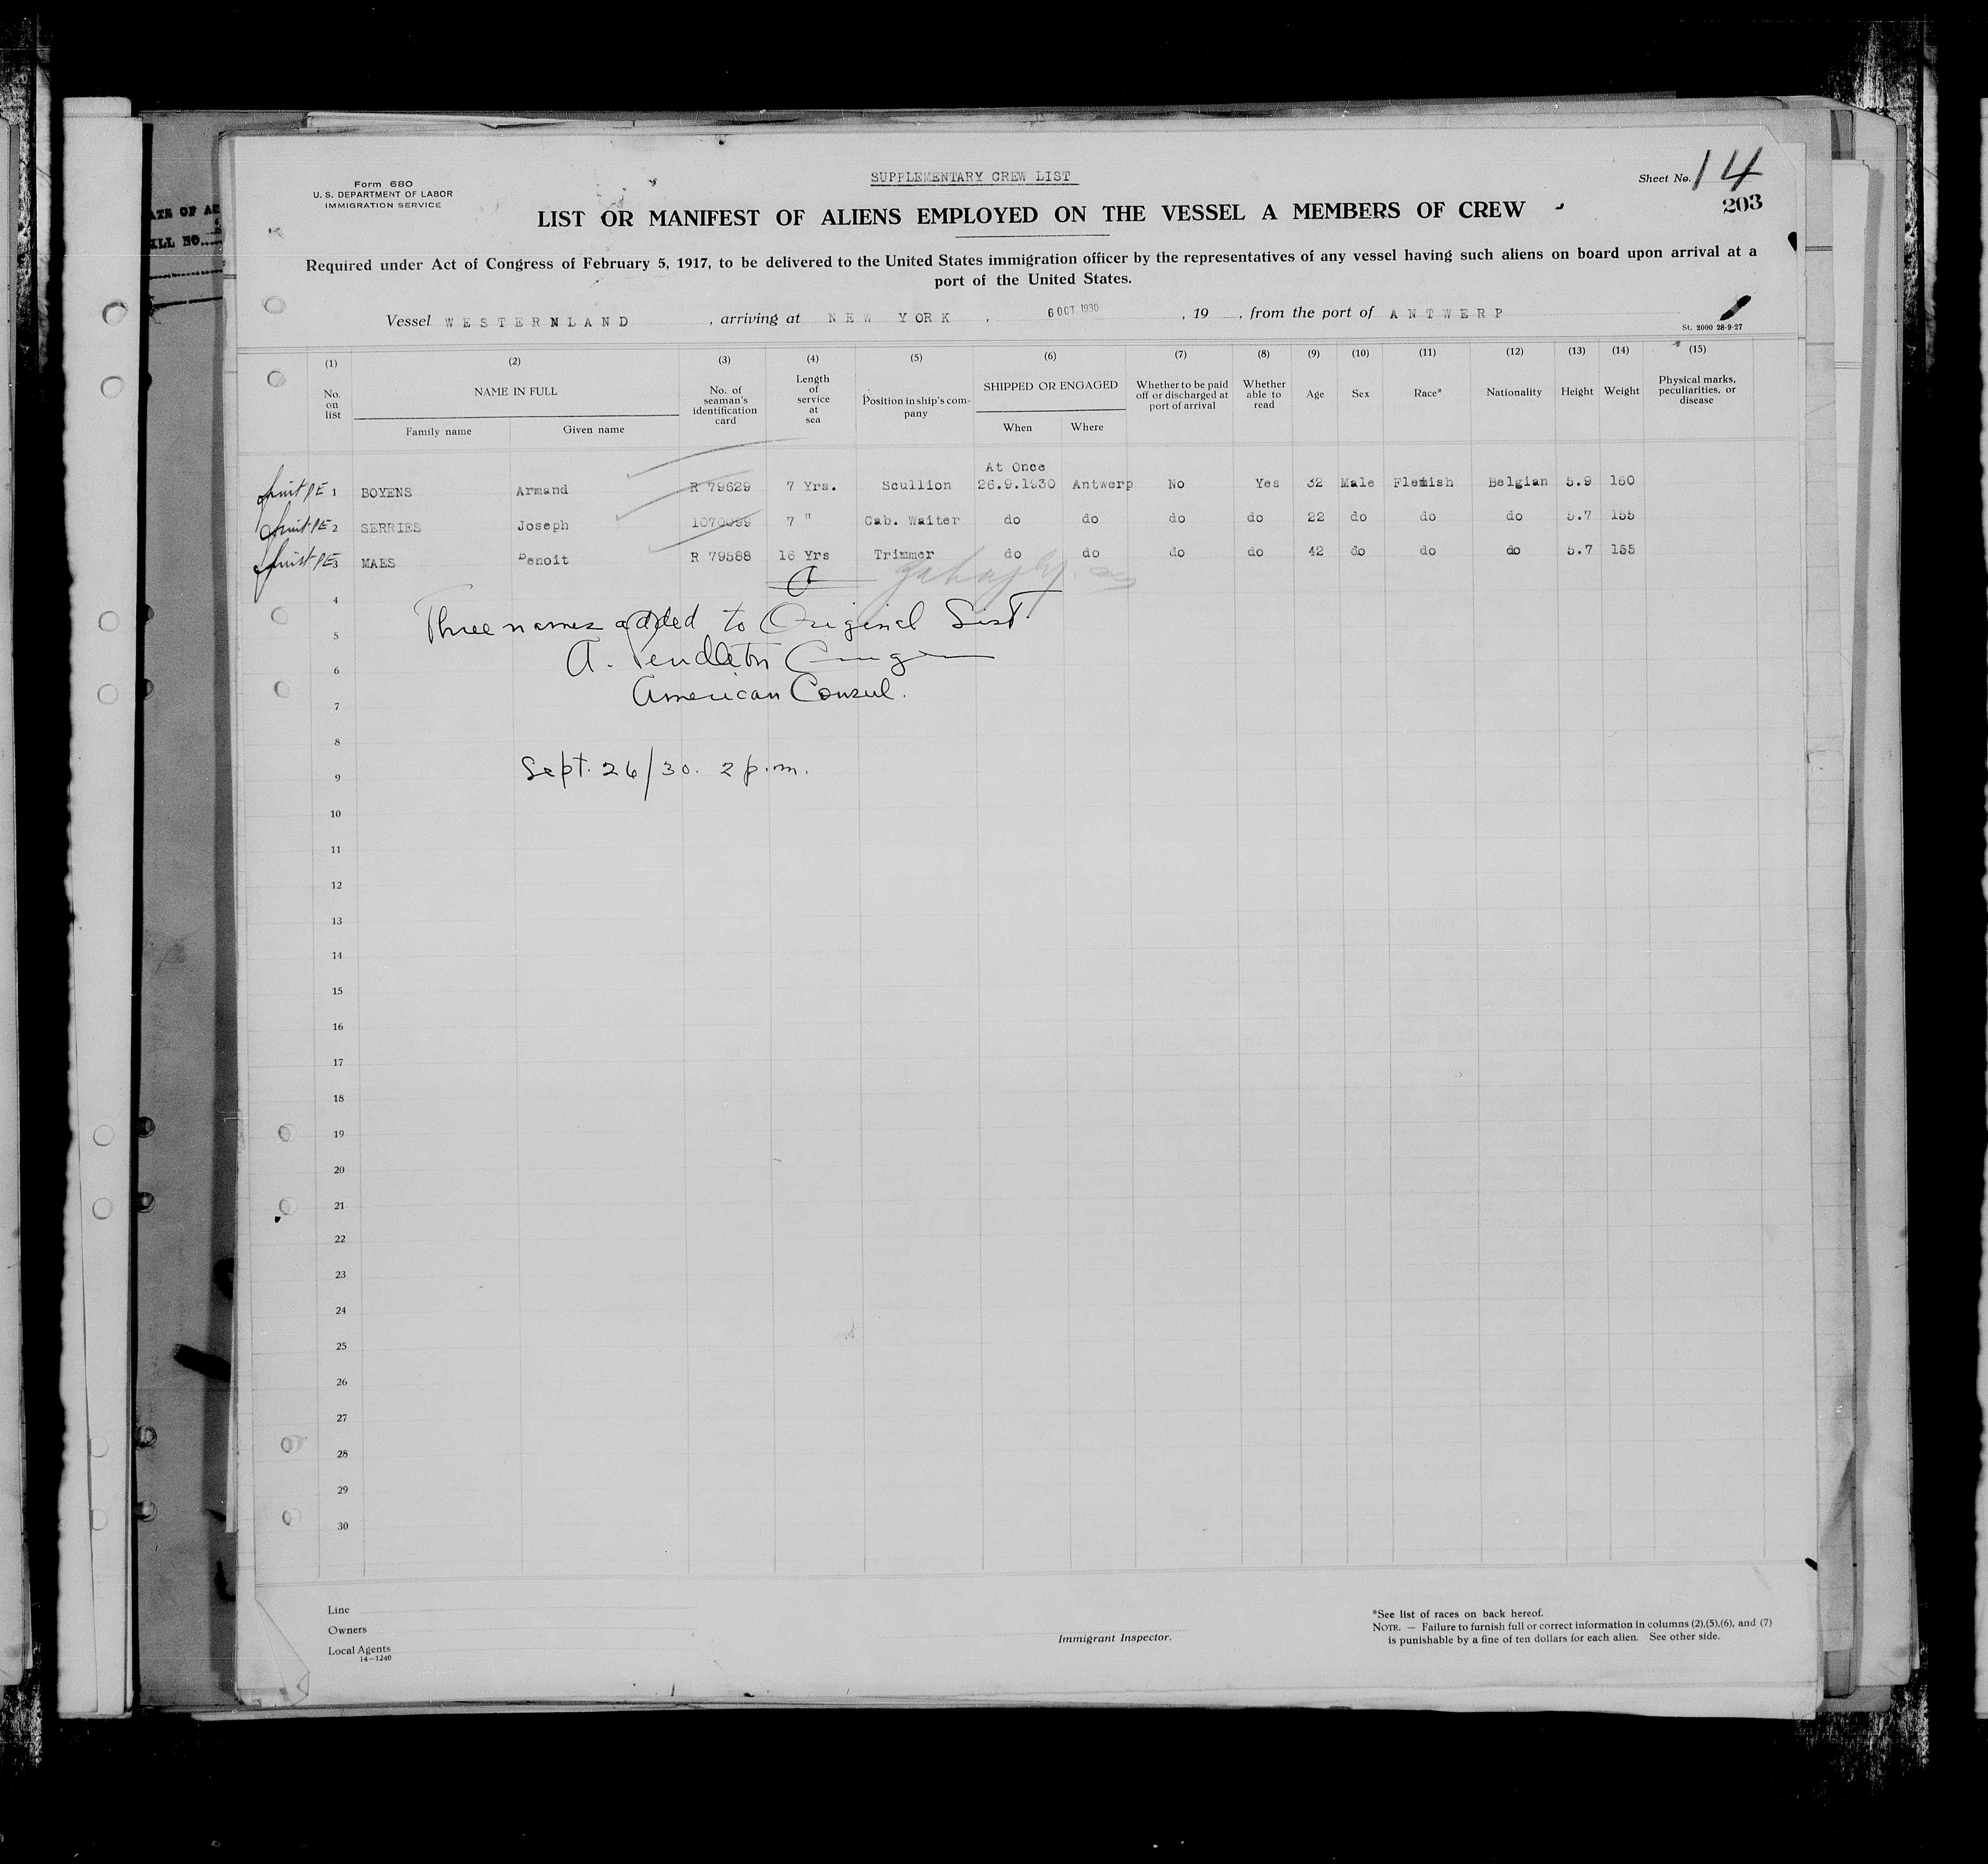 SUPPLEMENTARY CREW LIST
Form 680
U. S. DEPARTMENT OF LABOR
IMMIGRATION SERVICE
Sheet No. 14
203
LIST OR MANIFEST OF ALIENS EMPLOYED ON THE VESSEL A MEMBERS OF CREW
Required under Act of Congress of February 5, 1917, to be delivered to the United States immigration officer by the representatives of any vessel having such aliens on board upon arrival at a
port of the United States.
Vessel WESTERNLAND , arriving at NEW YORK , 6 OCT 1930 , 19 , from the port of ANTWERP
St. 2000 28-9-27
(1) (2) (3) (4) (5) (6) (7) (8) (9) (10) (11) (12) (13) (14) (15)
No. on list NAME IN FULL Family name Given name No. of seaman's identification card Length of service at sea Position in ship's company SHIPPED OR ENGAGED When Where Whether to be paid off or discharged at port of arrival Whether able to read Age Sex Race* Nationality Height Weight Physical marks, peculiarities, or disease
At Once
1 BOYENS Armand R 79629 7 Yrs. Scullion 26.9.1930 Antwerp No Yes 32 Male Flemish Belgian 5.9 160
2 SERRIES Joseph 1070099 7 " Cab. Waiter do do do do 22 do do do 5.7 155
3 MAES Benoit R 79588 16 Yrs Trimmer do do do do 42 do do do 5.7 155
4
Three names added to Original List.
5
A. Pendleton
6
American Consul.
7
8
Sept. 26/30. 2 p.m.
9
10
11
12
13
14
15
16
17
18
19
20
21
22
23
24
25
26
27
28
29
30
Line
Owners
Local Agents
14-1240
Immigrant Inspector.
*See list of races on back hereof.
NOTE. — Failure to furnish full or correct information in columns (2),(5),(6), and (7)
is punishable by a fine of ten dollars for each alien. See other side.